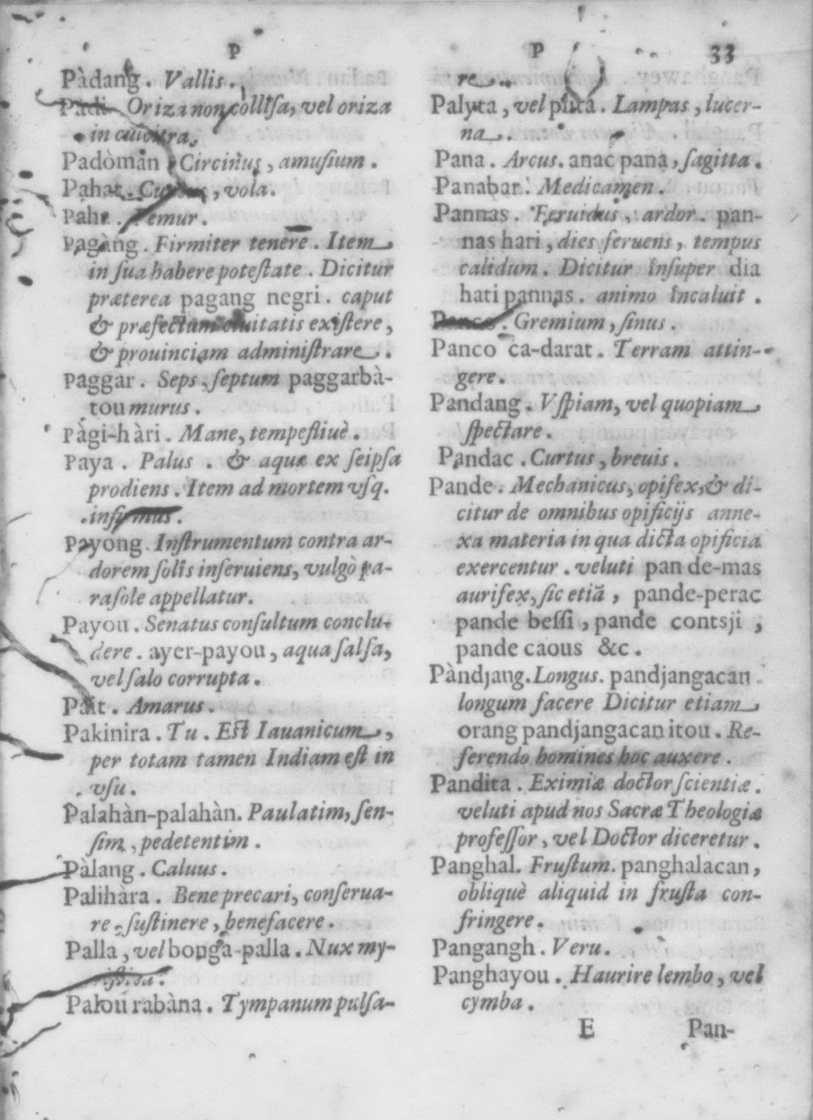 P
Pàdang. Vallis.
Padi. Oriza non collisa, vel oriza
in
Padòman Circinus, amusium.
Pahat. , vola.
Paha. Femur.
Pagàng. Firmiter tenere. Item
in sua habere potestate. Dicitur
præterea pagang negri. caput
& præfectum ciuitatis existere,
& prouinciam administrare.
Paggar. Seps, septum paggarbà-
tou murus.
Pàgi-hàri. Mane, tempestiuè.
Paya. Palus. & aquæ ex seipsa
prodiens. Item ad mortem vsq.
infirmus.
Payong. Instrumentum contra ar-
dorem solis inseruiens, vulgò pa-
rasole appellatur.
Payou. Senatus consultum conclu-
dere. ayer-payou, aqua salsa,
vel salo corrupta.
Paït. Amarus.
Pakinira. Tu. Est Iauanicum,
per totam tamen Indiam est in
vsu.
Palahàn-palahàn. Paulatim, sen-
sim, pedetentim.
Pàlang. Caluus.
Palihàra. Bene precari, conserua-
re, sustinere, benefacere.
Palla, vel bonga-palla. Nux my-
ristica.
Palou rabàna. Tympanum pulsa-
P 33
re.
Palyta, vel plita. Lampas, lucer-
na.
Pana. Arcus. anac pana, sagitta.
Panabar. Medicamen.
Pannas. Feruidus, ardor. pan-
nas hari, dies feruens, tempus
calidum. Dicitur insuper dia
hati pannas. animo incaluit.
Panco. Gremium, sinus.
Panco ca-darat. Terram attin-
gere.
Pandang. Vspiam, vel quopiam
spectare.
Pandac. Curtus, breuis.
Pande. Mechanicus, opifex, & di-
citur de omnibus opificijs anne-
xa materia in qua dicta opificia
exercentur. veluti pan de-mas
aurifex, sic etiã, pande-perac
pande bessi, pande contsji,
pande caous &c.
Pàndjang. Longus. pandjangacan
longum facere Dicitur etiam
orang pandjangacan itou. Re-
ferendo homines hoc auxere.
Pandita. Eximiæ doctor scientiæ.
veluti apud nos Sacræ Theologiæ
professor, vel Doctor diceretur.
Panghal. Frustum. panghalacan,
obliquè aliquid in frusta con-
fringere.
Pangangh. Veru.
Panghayou. Haurire lembo, vel
cymba.
E Pan-